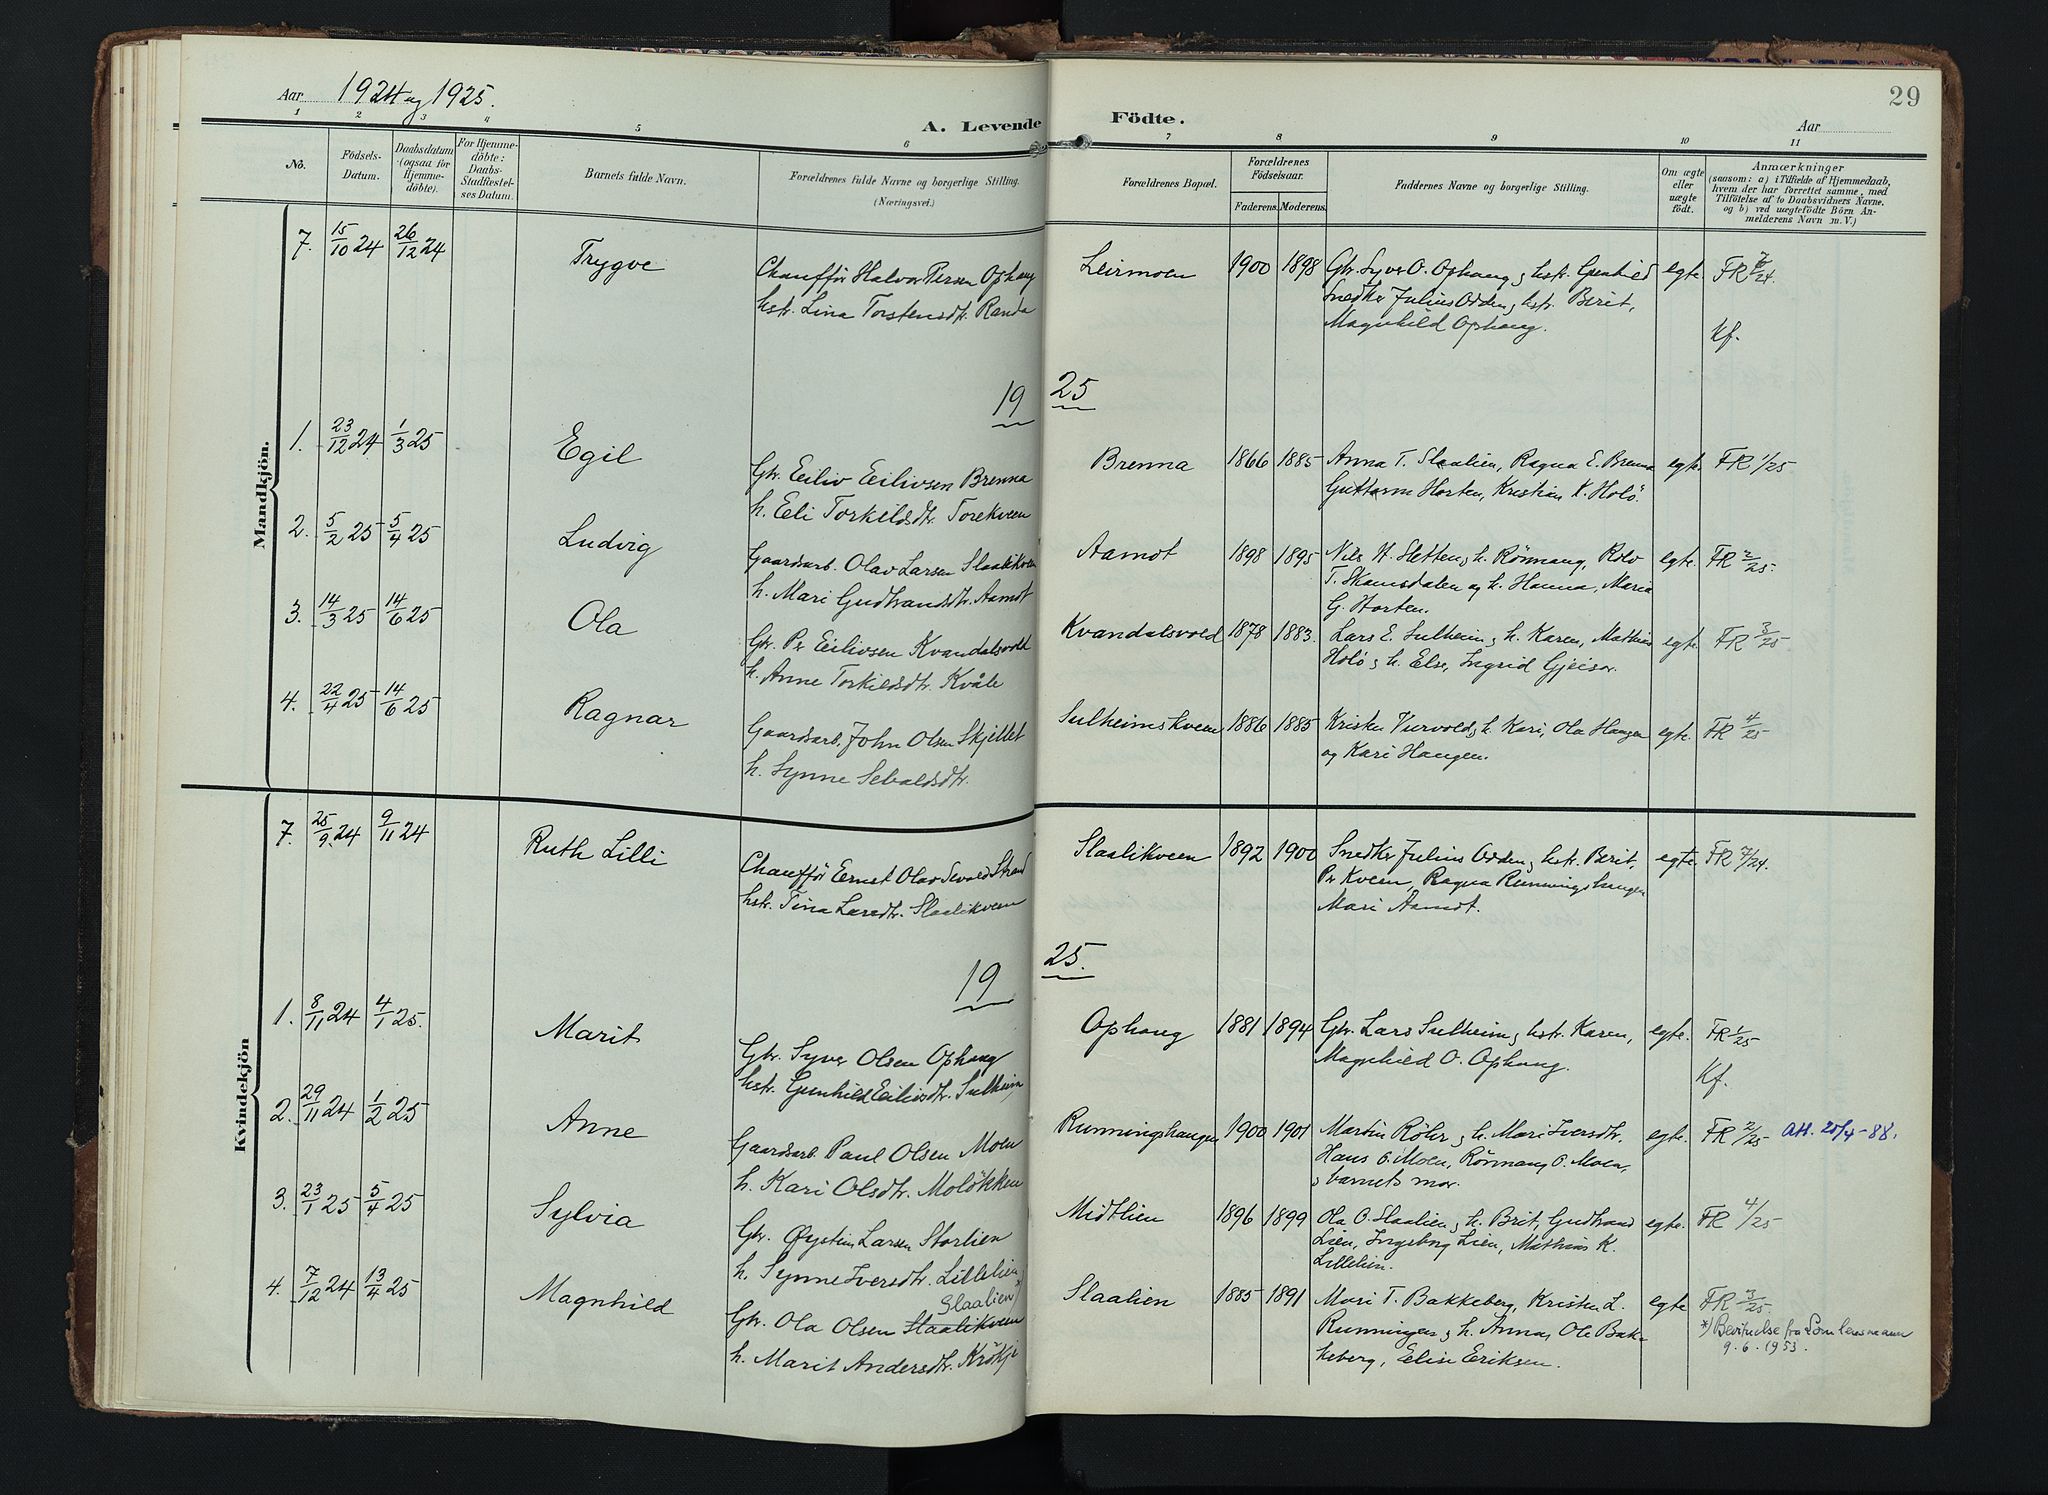 Aar 1924 og 1925.
A. Levende Födte.
Aar
29
1 2 3 4 5 6 7 8 9 10 11
No.
Födsels-Datum.
Daabsdatum (ogsaa for Hjemme-döbte).
For Hjemme-döbte: Daabs-Stadfæstel-ses Datum.
Barnets fulde Navn.
Forældrenes fulde Navne og borgerlige Stilling.
(Næringsvei.)
Forældrenes Bopæl.
Forældrenes Födselsaar.
Faderens. Moderens.
Faddernes Navne og borgerlige Stilling.
Om ægte eller uægte født.
Anmærkninger
(saasom: a) i Tilfælde af Hjemmedaab,
hvem der har forrettet samme, med
Tilföielse af to Daabsvidners Navne.
og b) ved uægtefödte Börn An-
melderens Navn m. V.)
Mandkjön.
7. 15/10 24 26/12 24 Trygve
Chaufför Halvor Persen Ophaug
hstr. Lina Torstensdtr. Randa
Leirmoen 1900 1898
Gbr. Syver O. Ophaug og hstr. Gunhild
Snedker Julius Odden og hstr. Berit,
Magnhild Ophaug.
egte. FR 7/24.
Kf.
19 25
1. 23/12 24 1/3 25 Egil
Gbr. Eiliv Eilivsen Brenna
h. Eli Torkildsdtr. Torekveen
Brenna 1866 1885
Anna T. Slaalien, Ragna E. Brenna
Guttorm Horten, Kristian K. Holö.
egte. FR 1/25
2. 5/2 25 5/4 25 Ludvig
Gaardsarb. Olav Larsen Slaalikveen
h. Mari Gudbrandsdtr. Aamot
Aamot 1898 1895
Nils H. Sletten og h. Rönnaug, Rolv
T. Skamsdalen og h. Hanna, Maria
G. Horten.
egte. FR 2/25.
3. 14/3 25 14/6 25 Ola
Gbr. Pr Eilivsen Kvandalsvold
h. Anne Torkildsdtr. Kvåle
Kvandalsvold 1878 1883.
Lars E. Sulheim og h. Karen, Mathias
Holö og h. Else, Ingrid Gjeisar.
egte. FR 3/25
4. 22/4 25 14/6 25 Ragnar
Gaardsarb. John Olsen Skjellet
h. Synne Sebaldsdtr.
Sulheimskveen 1886 1885
Kristen Viervold og h. Kari, Ola Haugen
og Kari Haugen.
egte. FR 4/25
Kvindekjön
7. 25/9 24 9/11 24 Ruth Lilli
Chaufför Ernst Olav Sevald Strand
hstr. Tina Larsdtr. Slaalikveen
Slaalikveen 1892 1900
Snedker Julius Odden og hstr. Berit,
Pr Kveen, Ragna Runningshaugen
Mari Aamot.
egte. FR 7/24.
19 25.
1. 8/11 24 4/1 25. Marit
Gbr. Syver Olsen Ophaug
hstr. Gunhild Eilivsdtr. Sulheim
Ophaug 1881 1894
Gbr. Lars Sulheim og hstr. Karen,
Magnhild O. Ophaug.
egte. FR 1/25
Kf.
2. 29/11 24 1/2 25 Anne
Gaardsarb. Paul Olsen Moen
h. Kari Olsdtr. Molökken
Runningshaugen 1900 1901
Martin Röhr og h. Mari Iversdtr.
Hans O. Moen, Rönnaug O. Moen,
og barnets mor.
egte. FR 2/25 att. 20/4-88.
3. 23/1 25 5/4 25 Sylvia
Gbr. Øystein Larsen Storlien
h. Synne Iversdtr. Lillelien
Midtlien 1896 1899
Ola O. Slaalien og h. Brit, Gudbrand
Lien, Ingeborg Lien, Mathias K.
Lillelien.
egte. FR 4/25
4. 7/12 24 13/4 25 Magnhild
Slaalien *)
Gbr. Ola Olsen Slaalikveen
h. Marit Andersdtr. Krökje
Slaalien 1885 1891
Mari T. Bakkeberg, Kristen L.
Runningen og h. Anna, Ole Bak-
keberg, Elise Eriksen.
egte FR 3/25.
*) Bevitnelse fra Lom lensmann
9.6.1953.